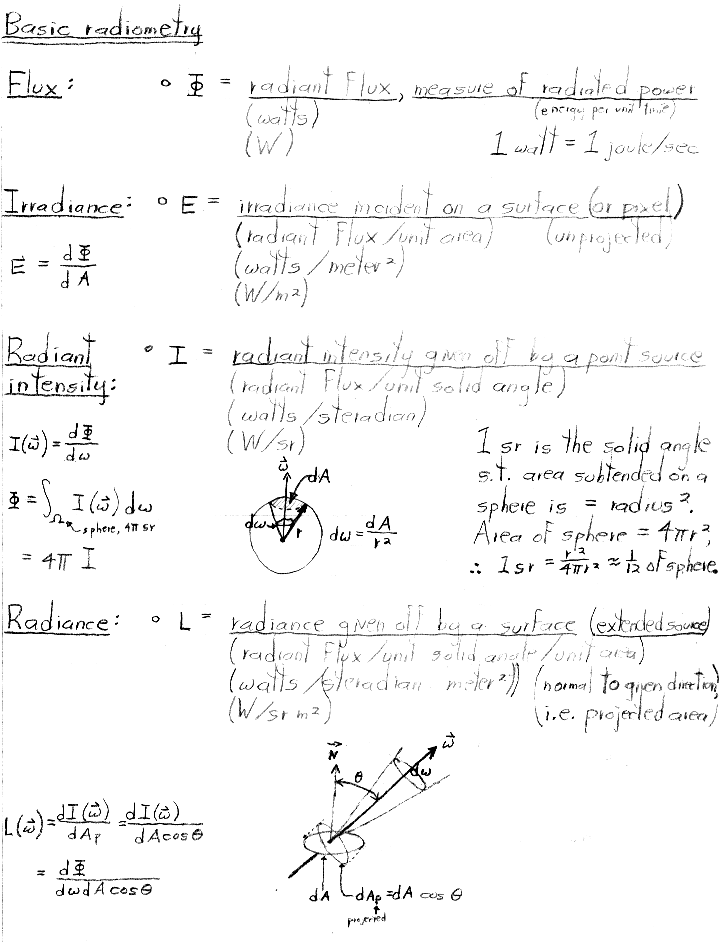 Basic radiometry
Flux: ∘ Φ = radiant flux, measure of radiated power
(energy per unit time)
(watts)
(W) 1 watt = 1 joule/sec
Irradiance: ∘ E = irradiance incident on a surface (or pixel)
(radiant flux/unit area) (unprojected)
E = dΦ/dA (watts/meter²)
(W/m²)
Radiant intensity: ∘ I = radiant intensity given off by a point source
(radiant flux/unit solid angle)
(watts/steradian)
(W/sr)
I(ω⃗) = dΦ/dω
Φ = ∫_Ω I(ω⃗) dω
sphere, 4π sr
= 4π I
ω⃗
dA
dω
r
dω = dA/r²
1 sr is the solid angle
s.t. area subtended on a
sphere is = radius².
Area of sphere = 4πr²,
∴ 1 sr = r²/4πr² ≈ 1/12 of sphere.
Radiance: ∘ L = radiance given off by a surface (extended source)
(radiant flux/unit solid angle/unit area)
(watts/steradian meter²) (normal to given direction)
(W/sr m²) (i.e. projected area)
N⃗
θ
ω⃗
dω
L(ω⃗) = dI(ω⃗)/dAp = dI(ω⃗)/dA cos θ
= dΦ/dω dA cos θ
dA
dAp = dA cos θ
projected